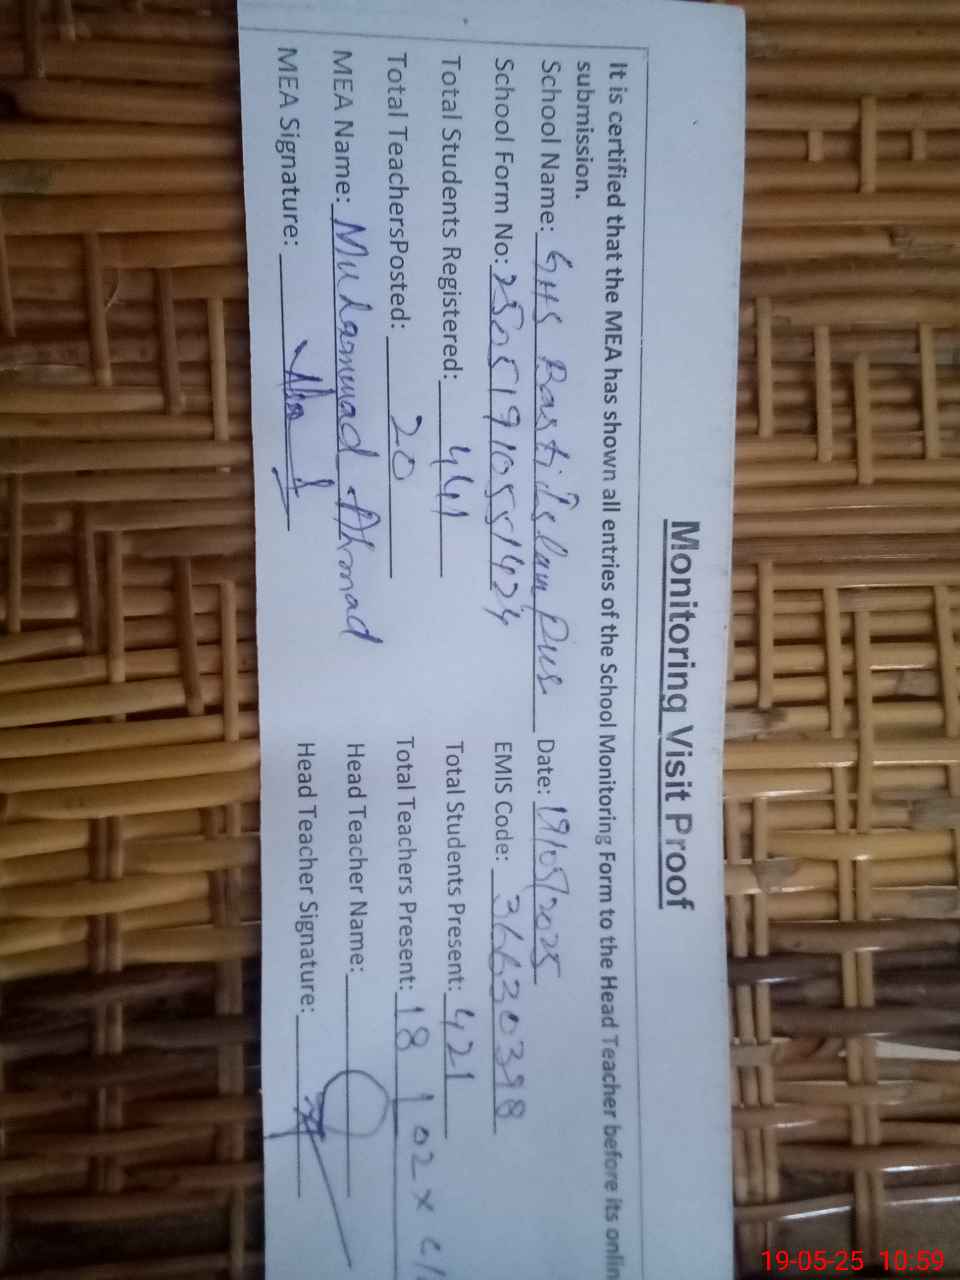 Monitoring Visit Proof
It is certified that the MEA has shown all entries of the School Monitoring Form to the Head Teacher before its onlin
submission.
School Name: GHS Basti Islam Pur Date: 19/05/2025
School Form No: EMIS Code:
Total Students Registered: 441 Total Students Present: 421
Total TeachersPosted: 20 Total Teachers Present: 18 1 02 x c/
MEA Name: Muhammad Ahmad Head Teacher Name:
MEA Signature: Head Teacher Signature:
19-05-25 10:59